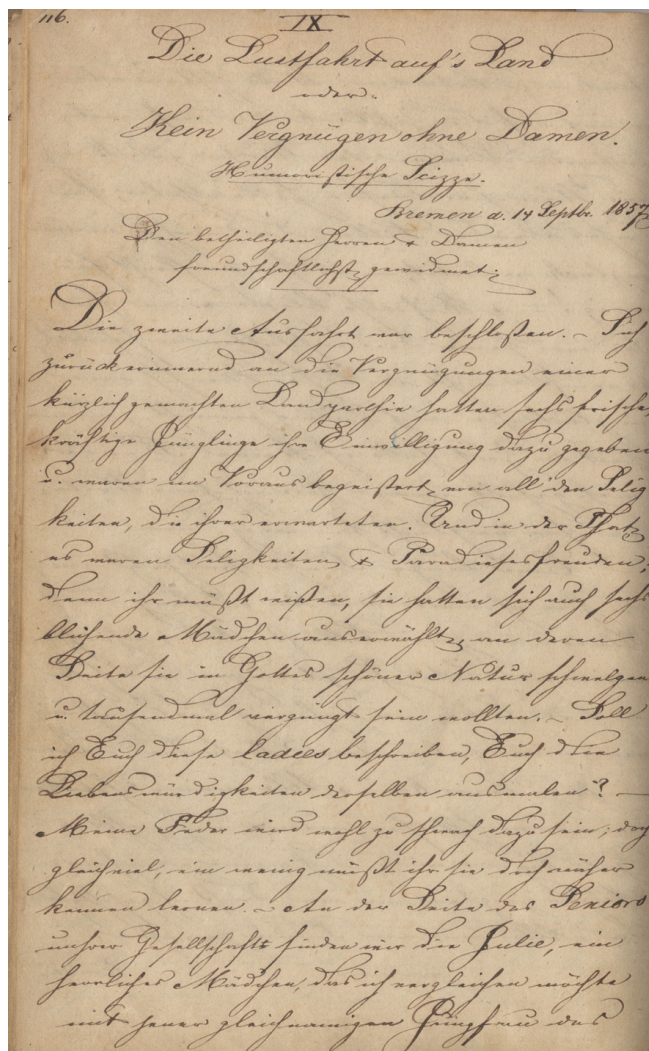 116.
IX
Die Lustfahrt auf's Land
oder
Kein Vergnügen ohne Damen.
Humoristische Scizze.
Bremen d. 14 Septbr. 1857
Den betheiligten Herren & Damen
freundschaftlichst gewidmet.
Die zweite Ausfahrt war beschloßen. – Sich
zurückerinnernd an die Vergnügungen einer
kürzlich gemachten Landparthie hatten sechs frische,
kräftige Jünglinge ihre Einwilligung dazu gegeben
u. waren im Voraus begeistert von all' den Selig
keiten, die ihrer erwarteten. Und in der That,
es waren Seligkeiten & Paradiesesfreuden;
denn ihr müßt wißen, sie hatten sich auch sechs
blühende Mädchen auserwählt, an deren
Seite sie in Gottes schöner Natur schwelgen
u. tausendmal vergnügt sein wollten. – Soll
ich Euch diese ladies beschreiben, Euch die
Liebenswürdigkeiten derselben ausmalen? –
Meine Feder wird wohl zu schwach dazu sein; doch
gleichviel, ein wenig müßt ihr sie doch näher
kennen lernen. – An der Seite des Seniors
unsrer Gesellschaft finden wir die Julie, ein
herrliches Mädchen, das ich vergleichen möchte
mit jener gleichnamigen Jungfrau des